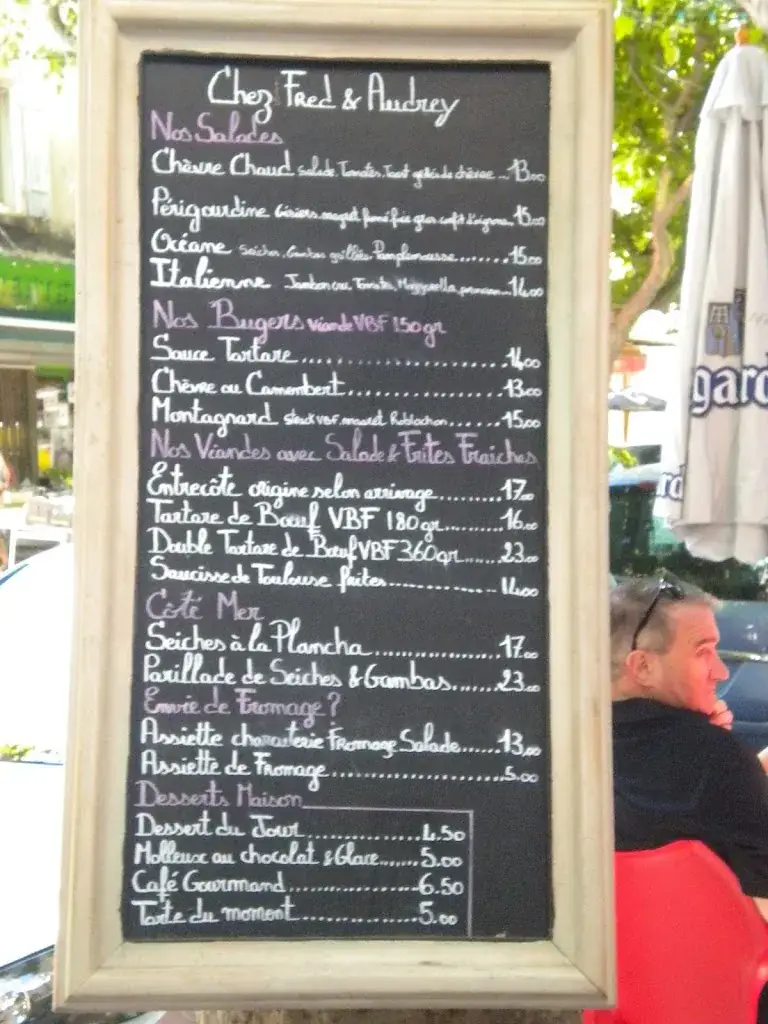 Chez Fred & Audrey
Nos Salades
Chèvre Chaud salade. Tomates. Toast grillés de chèvre ... 13.00
Périgourdine Gésiers. magret fumé foie gras confit d'oignons. 15.00
Océane Seiches. Gambas grillées. Pamplemousse ....... 15.00
Italienne Jambon cru. Tomate, Mozzarella, parmesan ... 14.00
Nos Bugers viande VBF 150gr
Sauce Tartare ........................ 14.00
Chèvre ou Camembert ................. 13.00
Montagnard steack VBF. Roblochon ....... 15.00
Nos Viandes avec Salade & Frites Fraiches
Entrecôte origine selon arrivage ......... 17.00
Tartare de Bœuf VBF 180gr ......... 16.00
Double Tartare de Bœuf VBF 360gr ...... 23.00
Saucisse de Toulouse frites .............. 14.00
Côté Mer
Seiches à la Plancha .................. 17.00
Parillade de Seiches & Gambas ....... 23.00
Envie de Fromage?
Assiette Fromage Salade ...... 13.00
Assiette de Fromage ....................... 5.00
Desserts Maison
Dessert du Jour ............... 4.50
Molleux au chocolat & Glace ....... 5.00
Café Gourmand ................. 6.50
Tarte du moment ............... 5.00
gard
rd